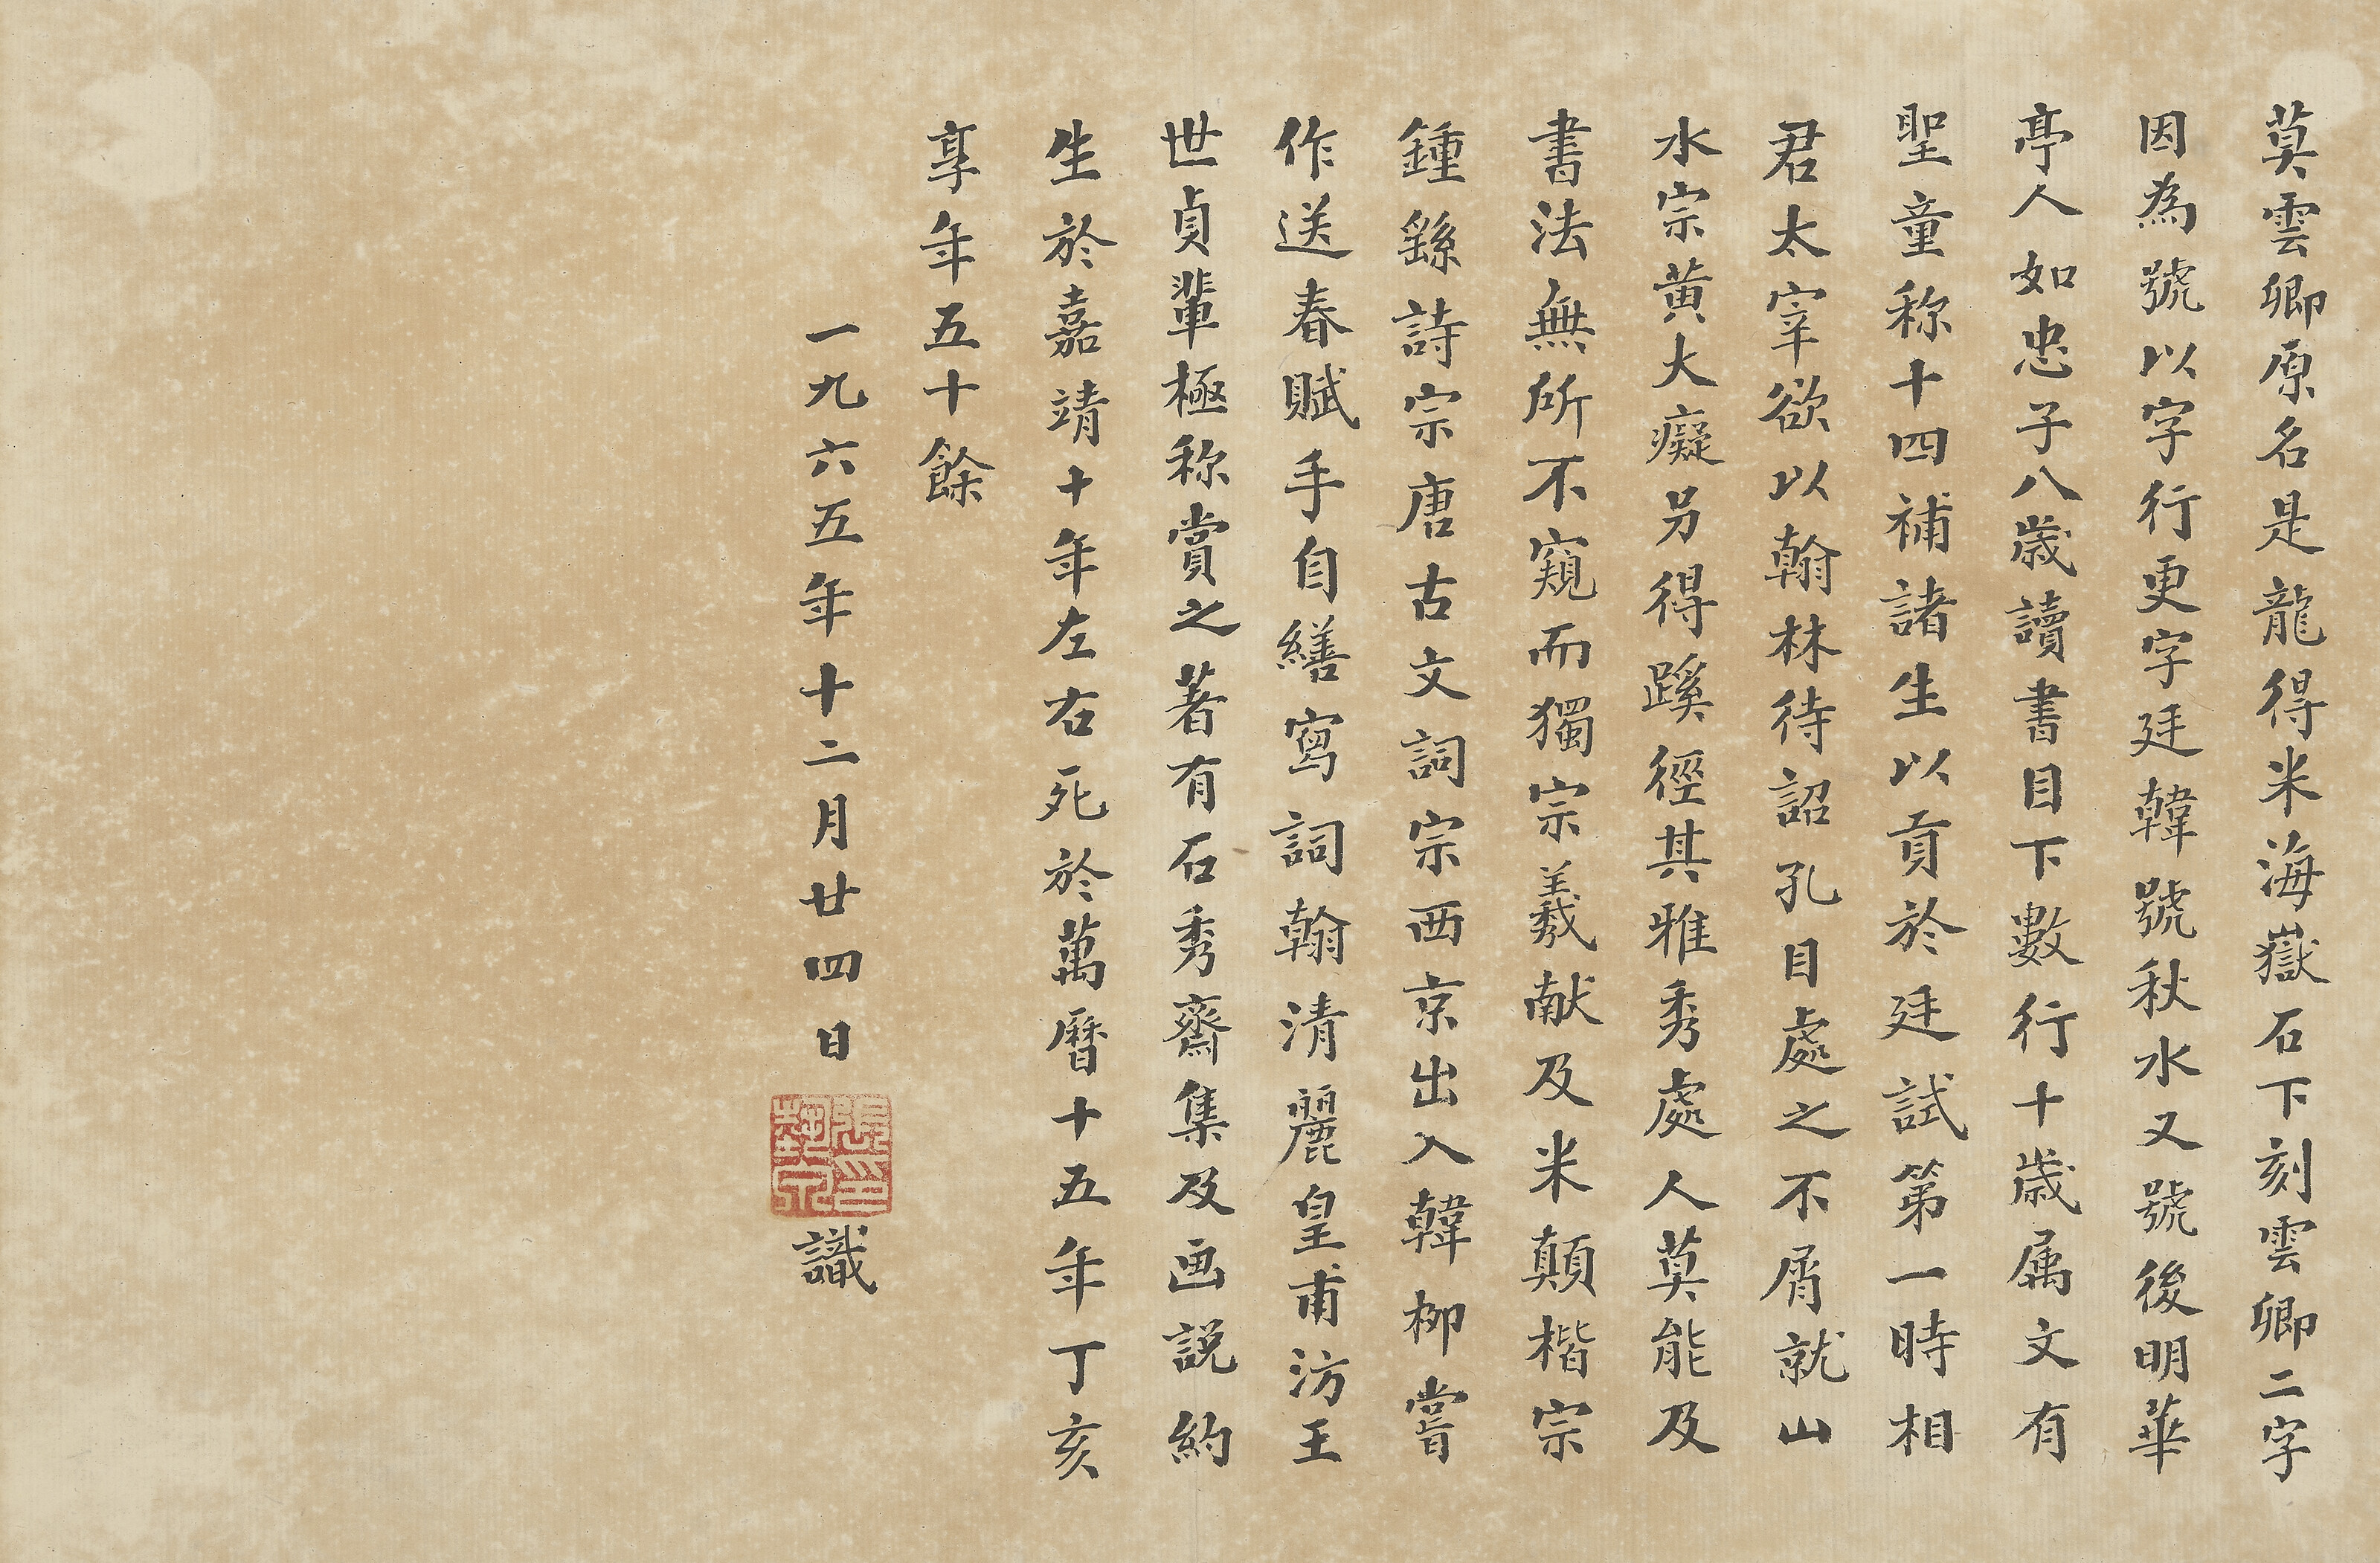 莫雲卿原名是龍得米海嶽石下刻雲卿二字
因為號以字行更字廷韓號秋水又號後明華
亭人如忠子八歲讀書目下數行十歲属文有
聖童称十四補諸生以貢於廷試第一時相
君太宰欲以翰林待詔孔目處之不屑就山
水宗黄大癡另得蹊徑其雅秀處人莫能及
書法無所不窺而獨宗羲献及米顛楷宗
鍾繇詩宗唐古文詞宗西京出入韓柳嘗
作送春賦手自繕寫詞翰清麗皇甫汸王
世貞輩極称賞之著有石秀齋集及画説約
生於嘉靖十年左右死於萬曆十五年丁亥
享年五十餘
一九六五年十二月廿四日
識